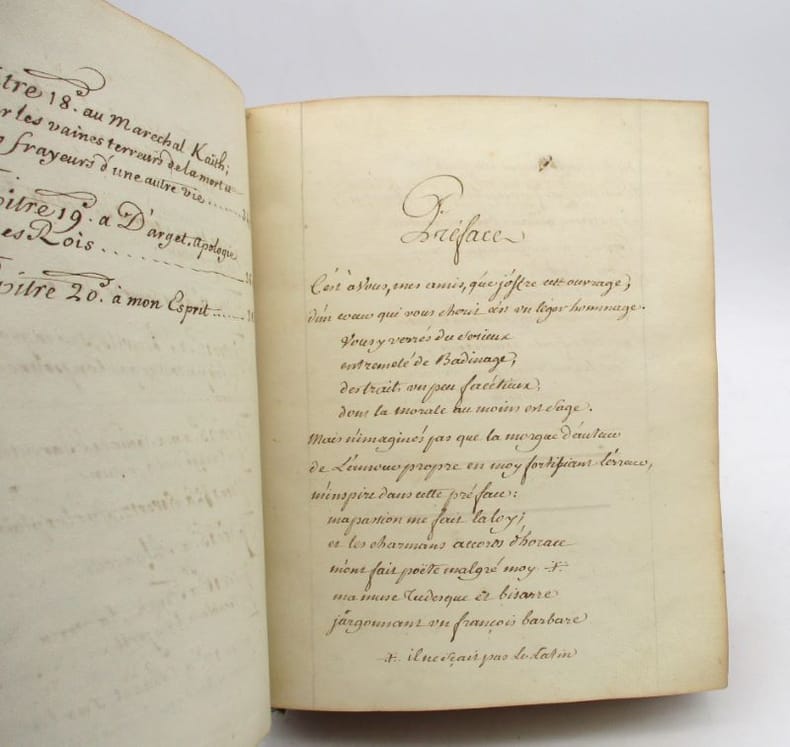 itre 18. au Marechal Kaith;
r les vaines terreurs de la mort et
frayeurs d'une autre vie
itre 19. a D'arget, apologie
es Rois
itre 20. à mon Esprit
Préface
C'est à Vous, mes amis, que j'offre cet ouvrage;
d'un coeur qui vous cherit c'en un léger hommage.
Vous y verrés du serieux
entremelé de Badinage;
des trait, un peu facétieux,
dont la morale au moins est sage.
Mais n'imaginés pas que la morgue d'auteur
de L'amour propre en moy fortifiant l'erreur,
m'inspire dans cette préface:
ma passion me fait la loy;
et les charmans accords d'horace
m'ont fait poëte malgré moy ✢.
ma muse Tudesque et bisarre
jargonnant un françois barbare
✢. il ne sçait pas le Latin